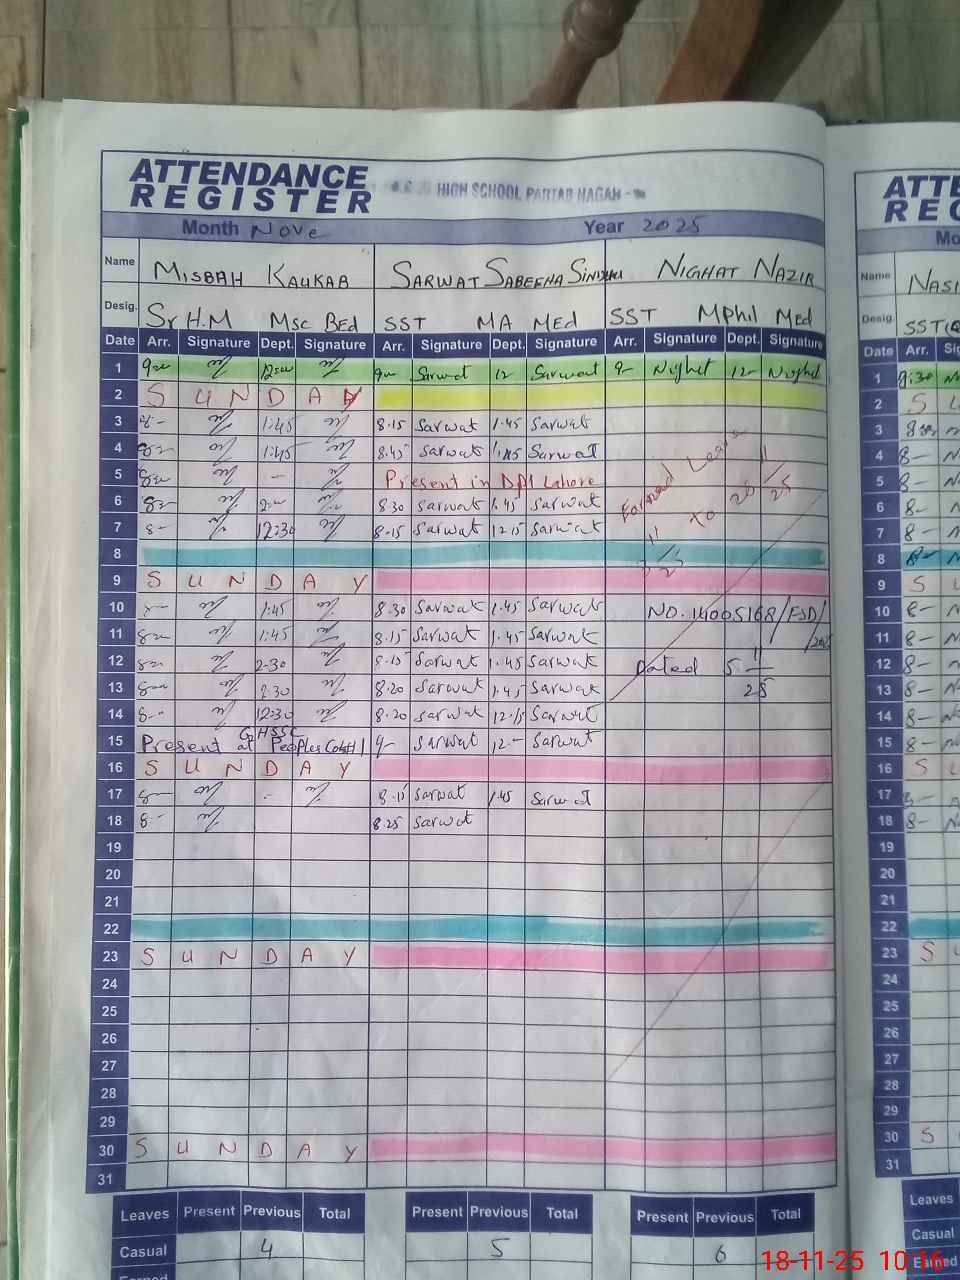 ATTENDANCE
REGISTER
HIGH SCHOOL PARTAB NAGAH
Month Nove Year 2025
Name MISBAH KAUKAB SARWAT SABEEHA SINDHU NIGHAT NAZIR
Desig. Sr H.M Msc BEd SST MA MEd SST MPhil MEd
Date Arr. Signature Dept. Signature Arr. Signature Dept. Signature Arr. Signature Dept. Signature
1 Sarwat 12 Sarwat 9- Nighat 12- Nighat
2 S U N D A Y
3 8- 1:45 8.15 Sarwat 1.45 Sarwat
4 1:45 8.45 Sarwat 1.45 Sarwat
5 - Present in DPI Lahore
6 8.30 Sarwat 1.45 Sarwat
7 8- 12:30 8.15 Sarwat 12.15 Sarwat
Earned Leave
3 11/25 to 28 11/25
8
9 S U N D A Y
10 1:45 8.30 Sarwat 1.45 Sarwat NO. 14005168/FSD/
11 1:45 8.15 Sarwat 1.45 Sarwat 2025
12 2.30 8.15 Sarwat 1.45 Sarwat Dated 5 11/25
13 2.30 8.20 Sarwat 1.45 Sarwat
14 8- 12:30 8.20 Sarwat 12.15 Sarwat
15 Present at GHSSC Peoples Col#1 9- Sarwat 12- Sarwat
16 S U N D A Y
17 8.15 Sarwat 1.45 Sarwat
18 8- 8.25 Sarwat
19
20
21
22
23 S U N D A Y
24
25
26
27
28
29
30 S U N D A Y
31
Leaves Present Previous Total Present Previous Total Present Previous Total
Casual 4 5 6
ATTE
REG
Mo
Name NASI
Desig. SST
Date Arr. Sig
1 9:30
2 S
3
4 8-
5 8-
6 8-
7 8-
8 8-
9 S
10 8-
11 8-
12 8-
13 8-
14 8-
15 8-
16 S
17
18 8-
19
20
21
22
23 S
24
25
26
27
28
29
30 S
31
Leaves
Casual
Earned
18-11-25 10:16